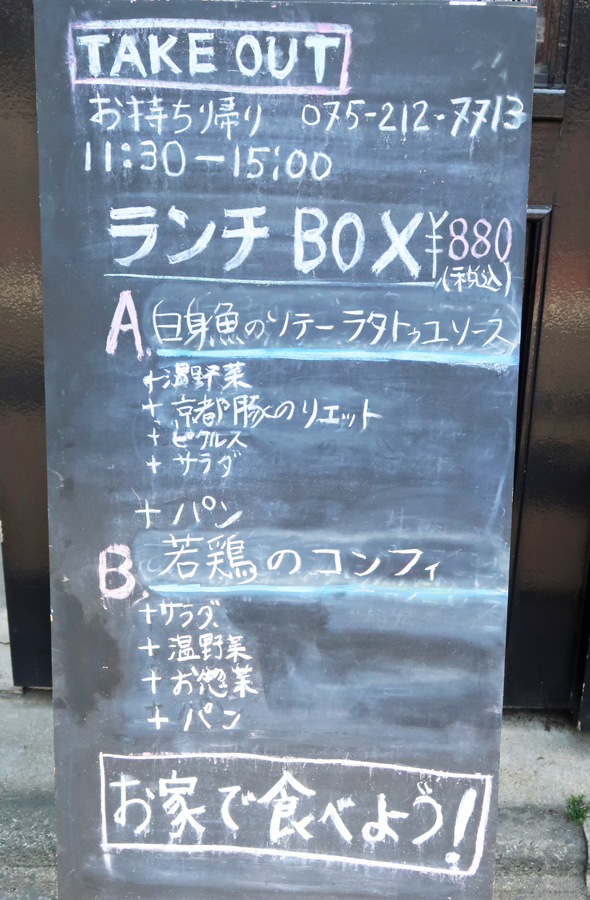 TAKE OUT
お持ち帰り 075-212-7713
11:30ー15:00
ランチ BOX ¥880
(税込)
A. 白身魚のソテー ラタトゥユソース
+温野菜
+ 京都豚のリエット
+ ピクルス
+ サラダ
+ パン
B. 若鶏のコンフィ
+サラダ
+温野菜
+お惣菜
+ パン
お家で食べよう!